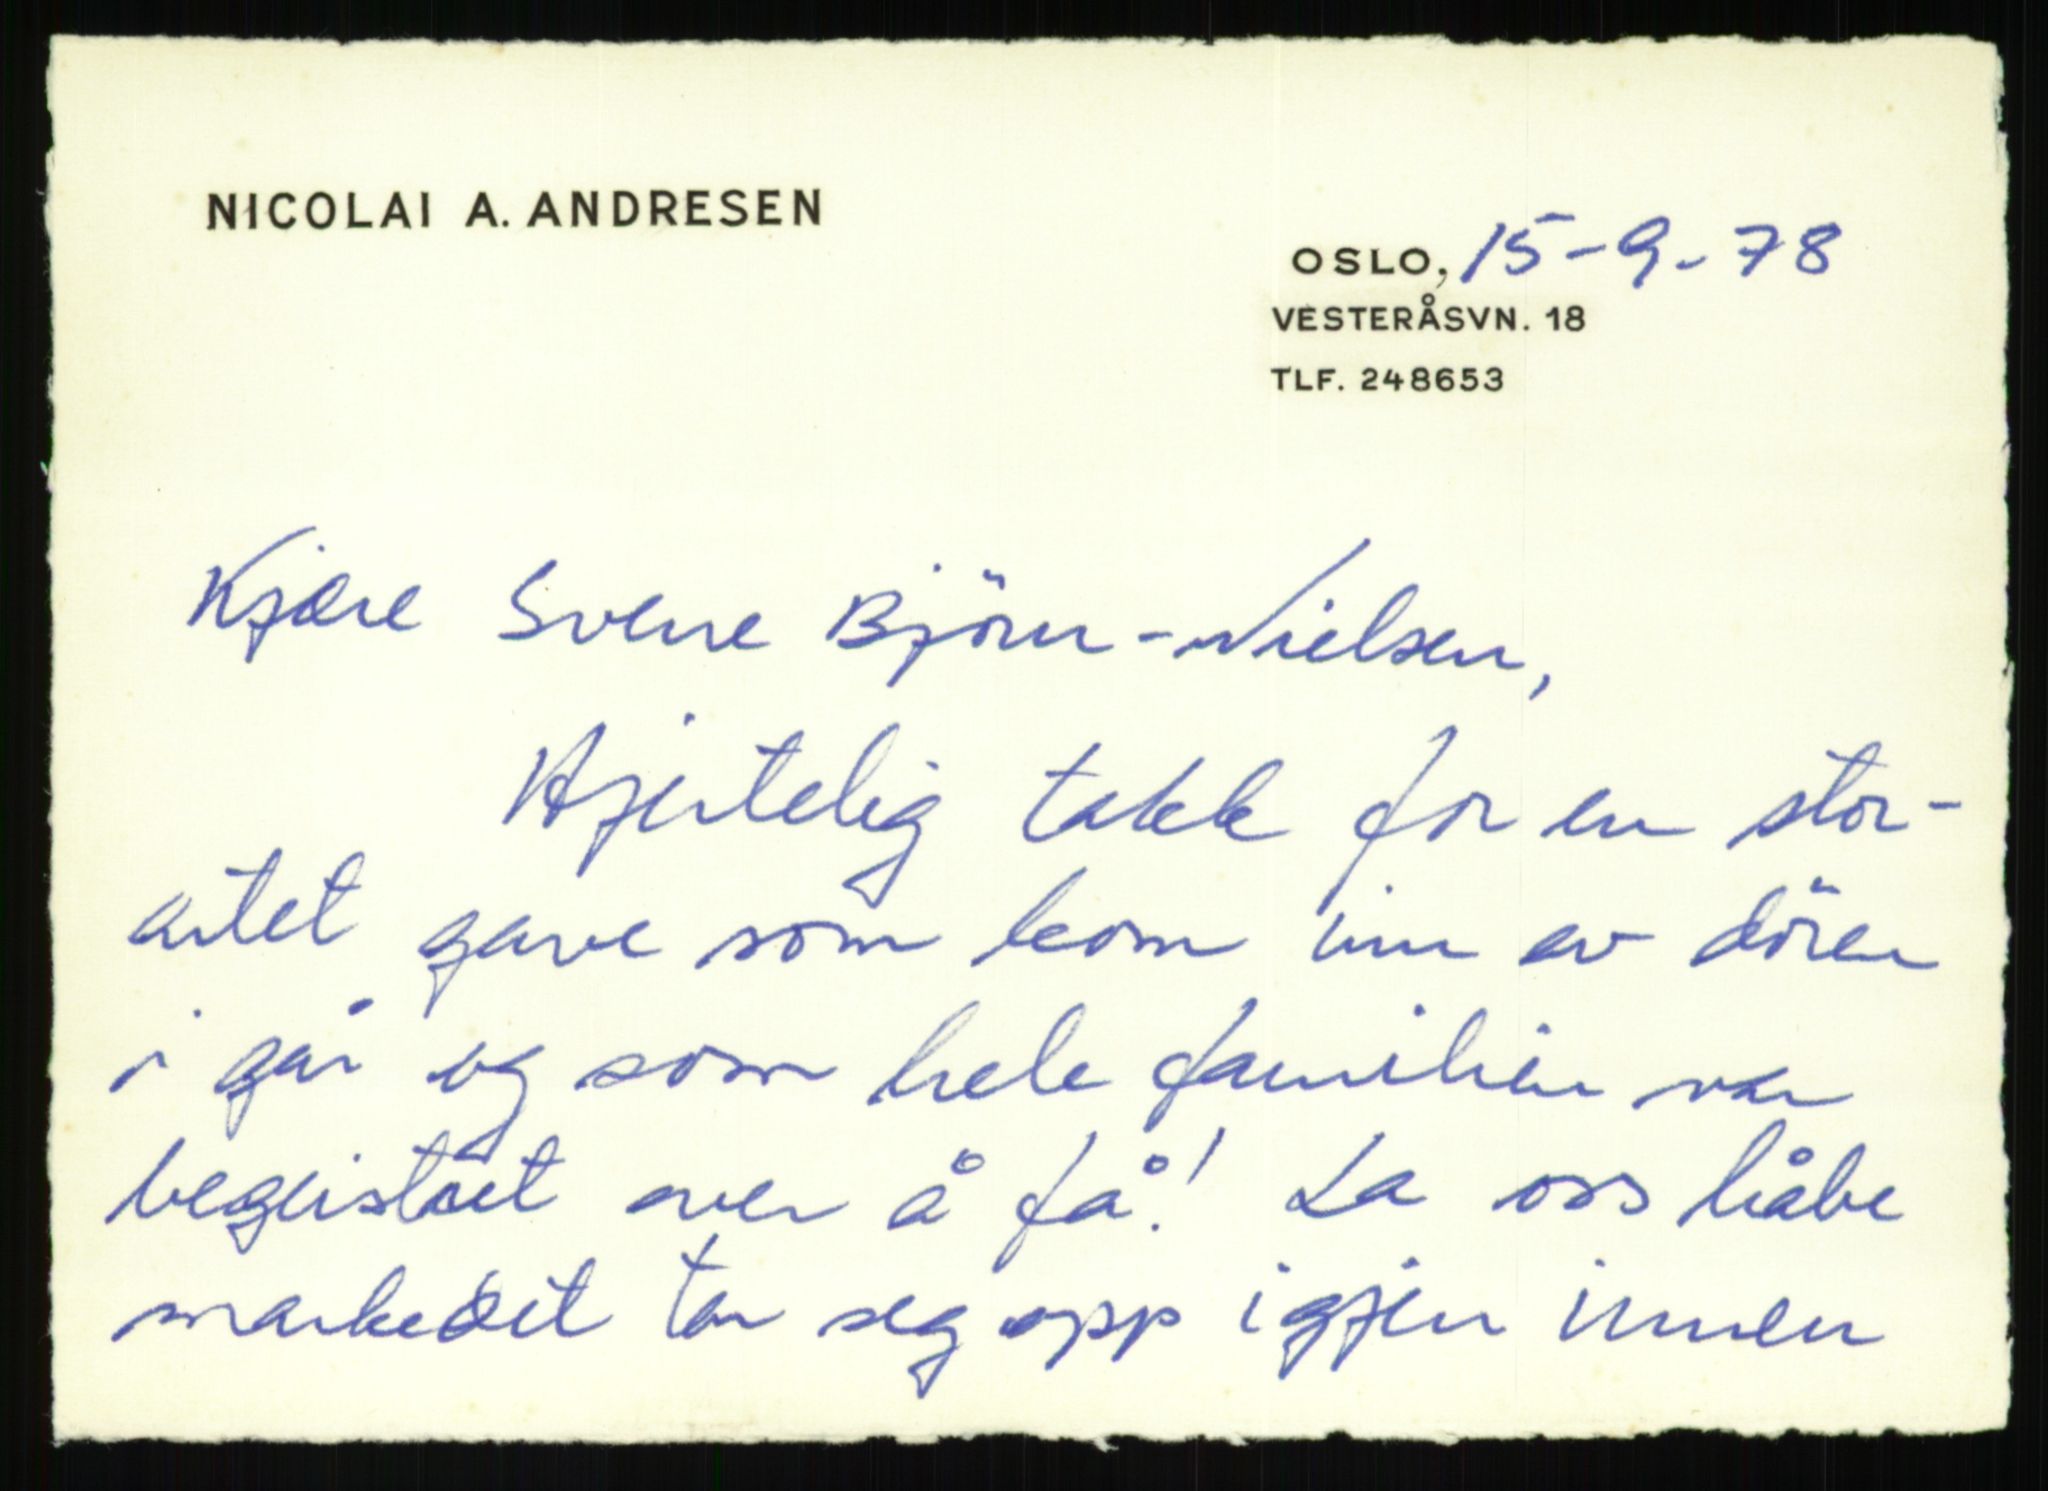 NICOLAI A. ANDRESEN
OSLO, 15-9-78
VESTERÅSVN. 18
TLF. 248653
Kjære Sverre Björn-Nielsen,
Hjertelig takk for en stor-
artet gave som kom inn av dören
i går og som hele familien var
begeistret over å få! La oss håbe
markedet tar seg opp igjen innen